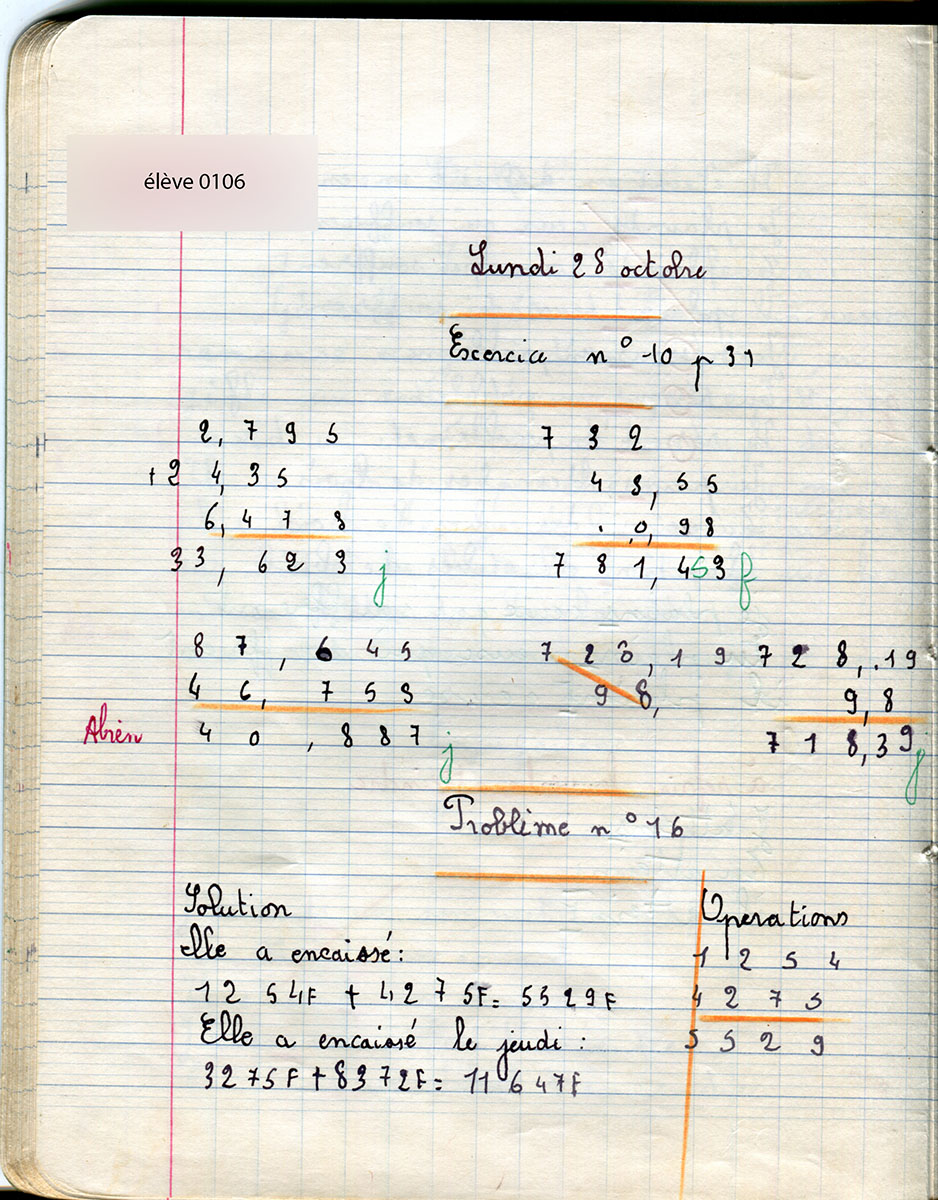 élève 0106
Lundi 28 octobre
Excercice n° 10 p 31
2,795
+24,35
6,478
33,623 j
732
48,55
.0,98
781,453 f
87,645
46,758
40,887 j
728,19
98,
728,.19
9,8
718,39 j
Abien
Problème n°16
Solution
Elle a encaissé:
1254F + 4275F = 5529F
Elle a encaissé le jeudi :
3275F + 8372F = 11647F
Opérations
1254
4275
5529